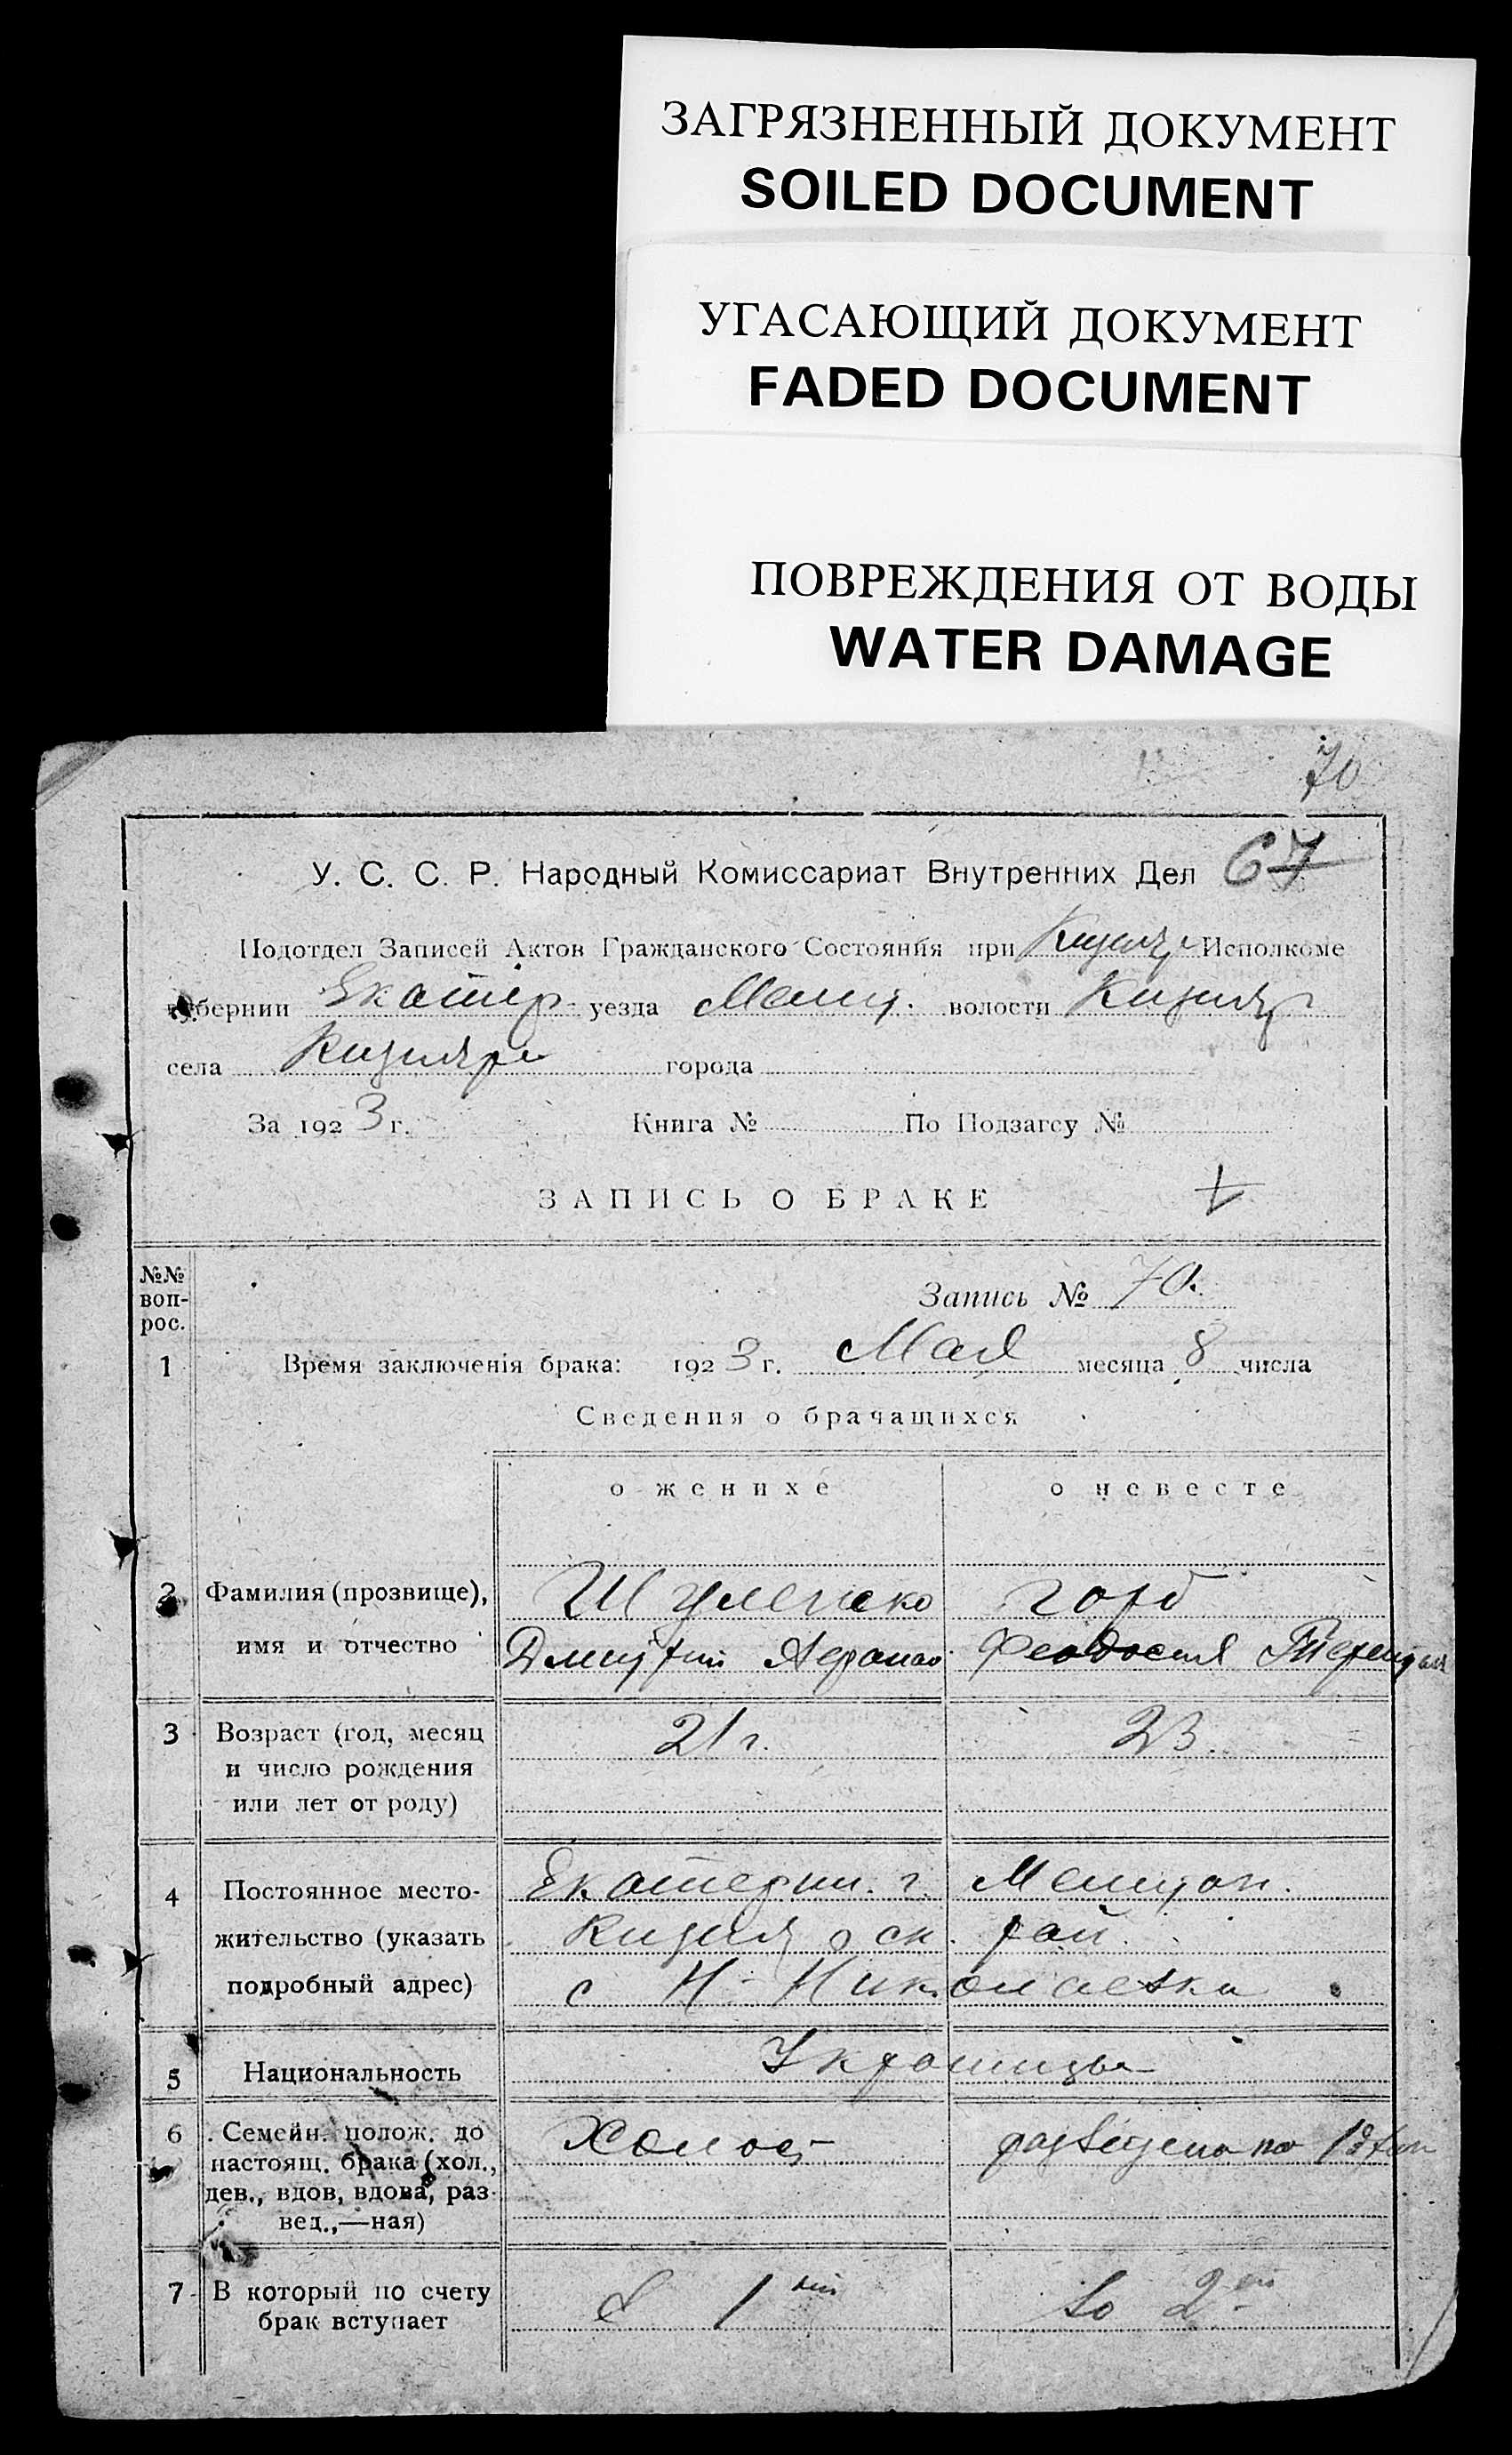 ЗАГРЯЗНЕННЫЙ ДОКУМЕНТ
SOILED DOCUMENT
УГАСАЮЩИЙ ДОКУМЕНТ
FADED DOCUMENT
ПОВРЕЖДЕНИЯ ОТ ВОДЫ
WATER DAMAGE
70
67
У. С. С. Р. Народный Комиссариат Внутренних Дел
Подотдел Записей Актов Гражданского Состояния при Исполкоме
губернии Екатер уезда Мелит. волости
села города
За 1923 г. Книга № По Подзагсу №
ЗАПИСЬ О БРАКЕ
№№ воп-рос.
Запись № 70.
1 Время заключенія брака: 1923 г. Мая месяца 8 числа
Сведения о брачащихся
о женихе о невесте
2 Фамилия (прозвище), Шуленко Горб
имя и отчество Дмитрий Афанас Феодосия Терентьев
3 Возраст (год, месяц 21 г. 23.
и число рождения
или лет от роду)
4 Постоянное место- Екатерин. г. Мелитоп.
жительство (указать рай.
подробный адрес) с Н-Николаевка
5 Национальность Украинцы
6 Семейн. полож. до Холост разведена по
настоящ. брака (хол.,
дев., вдов, вдова, раз-
вед.,—ная)
7 В который по счету в 1ый Во 2ой
брак вступает